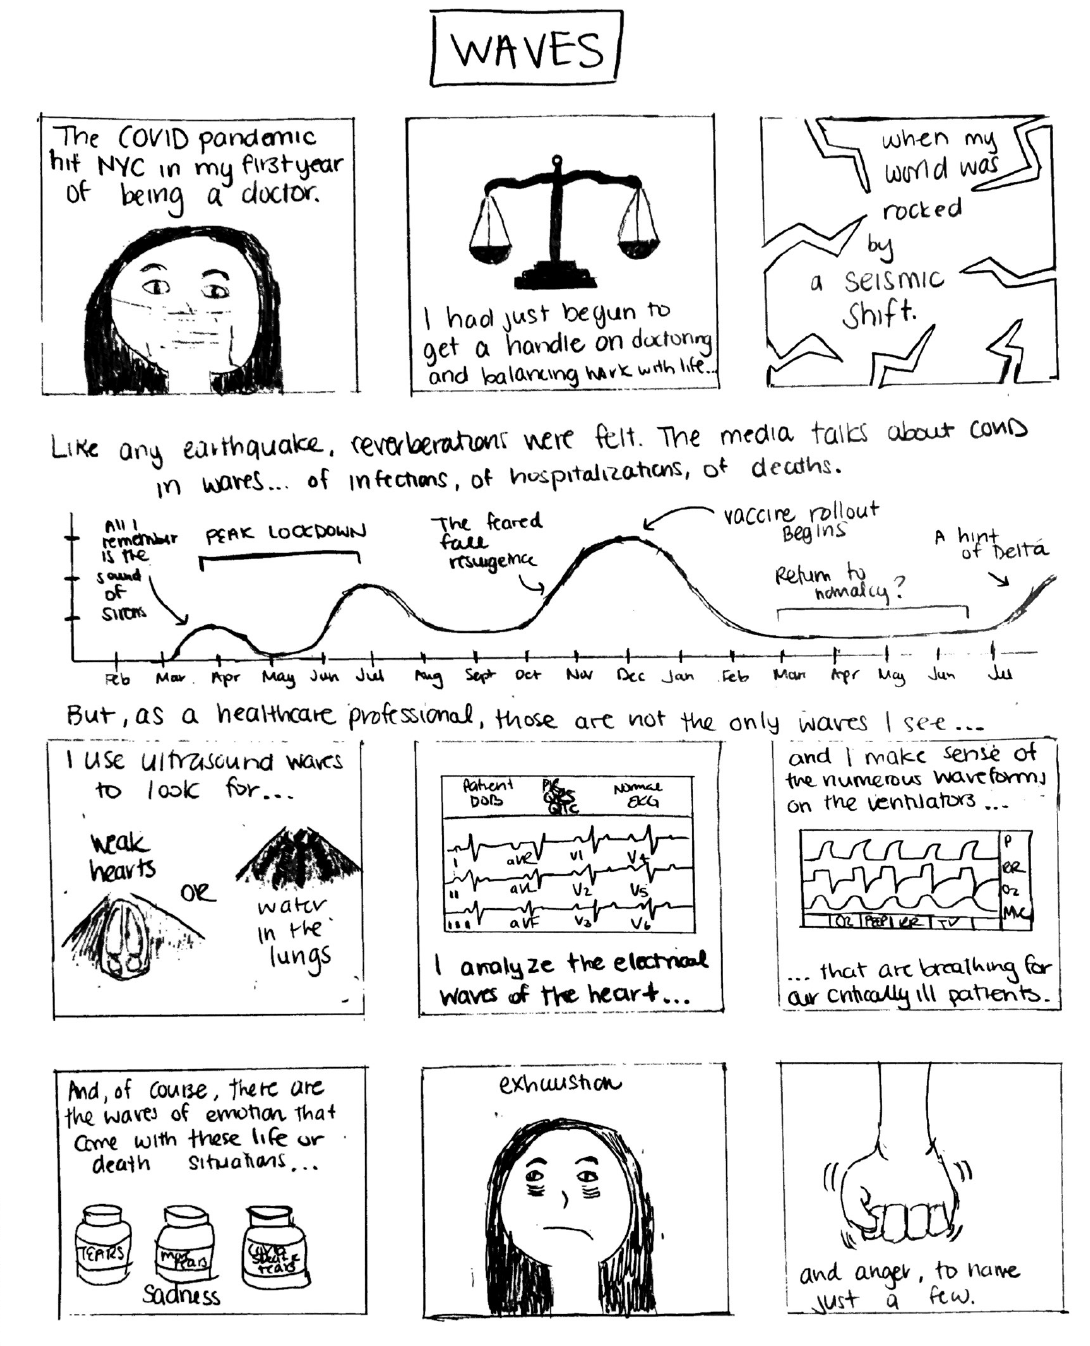 WAVES
The COVID pandemic
hit NYC in my first year
of being a doctor.
I had just begun to
get a handle on doctoring
and balancing work with life...
when my
world was
rocked
by
a seismic
shift.
Like any earthquake, reverberations were felt. The media talks about COVID
in waves... of infections, of hospitalizations, of deaths.
All I
remember
is the
sound
of
sirens
PEAK LOCKDOWN
The feared
fall
resurgence
vaccine rollout
Begins
Return to
normalcy?
A hint
of Delta
Feb Mar Apr May Jun Jul Aug Sept Oct Nov Dec Jan Feb Mar Apr May Jun Jul
But, as a healthcare professional, those are not the only waves I see...
I use ultrasound waves
to look for...
weak
hearts
OR
water
in the
lungs
Patient
DOB
PR
QRS
QTC
Normal
EKG
I aVR V1 V4
II aVL V2 V5
III aVF V3 V6
I analyze the electrical
waves of the heart...
and I make sense of
the numerous waveforms
on the ventilators...
P
RR
O2
O2 PEEP RR TV
... that are breathing for
our critically ill patients.
And, of course, there are
the waves of emotion that
come with these life or
death situations...
TEARS
more
tears
tears
Sadness
exhaustion
and anger, to name
just a few.